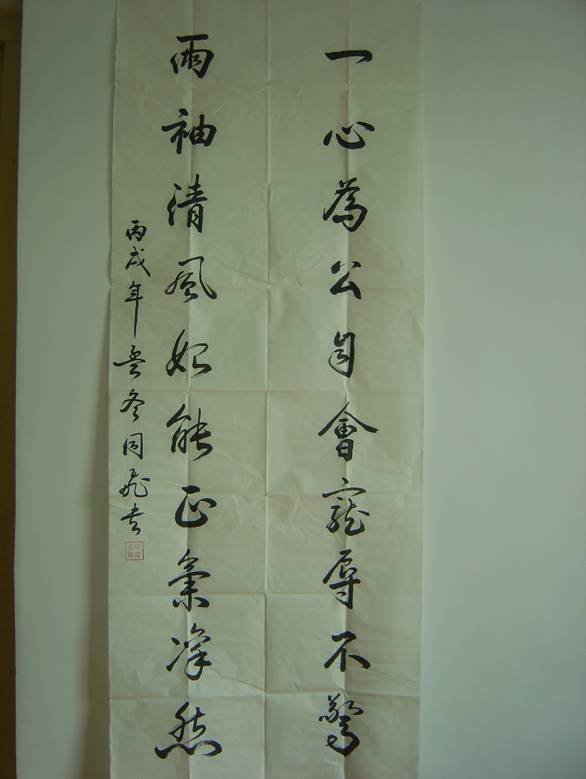 一心為公自會寵辱不驚
兩袖清風始能正氣凜然
丙戌年 冬同飛書